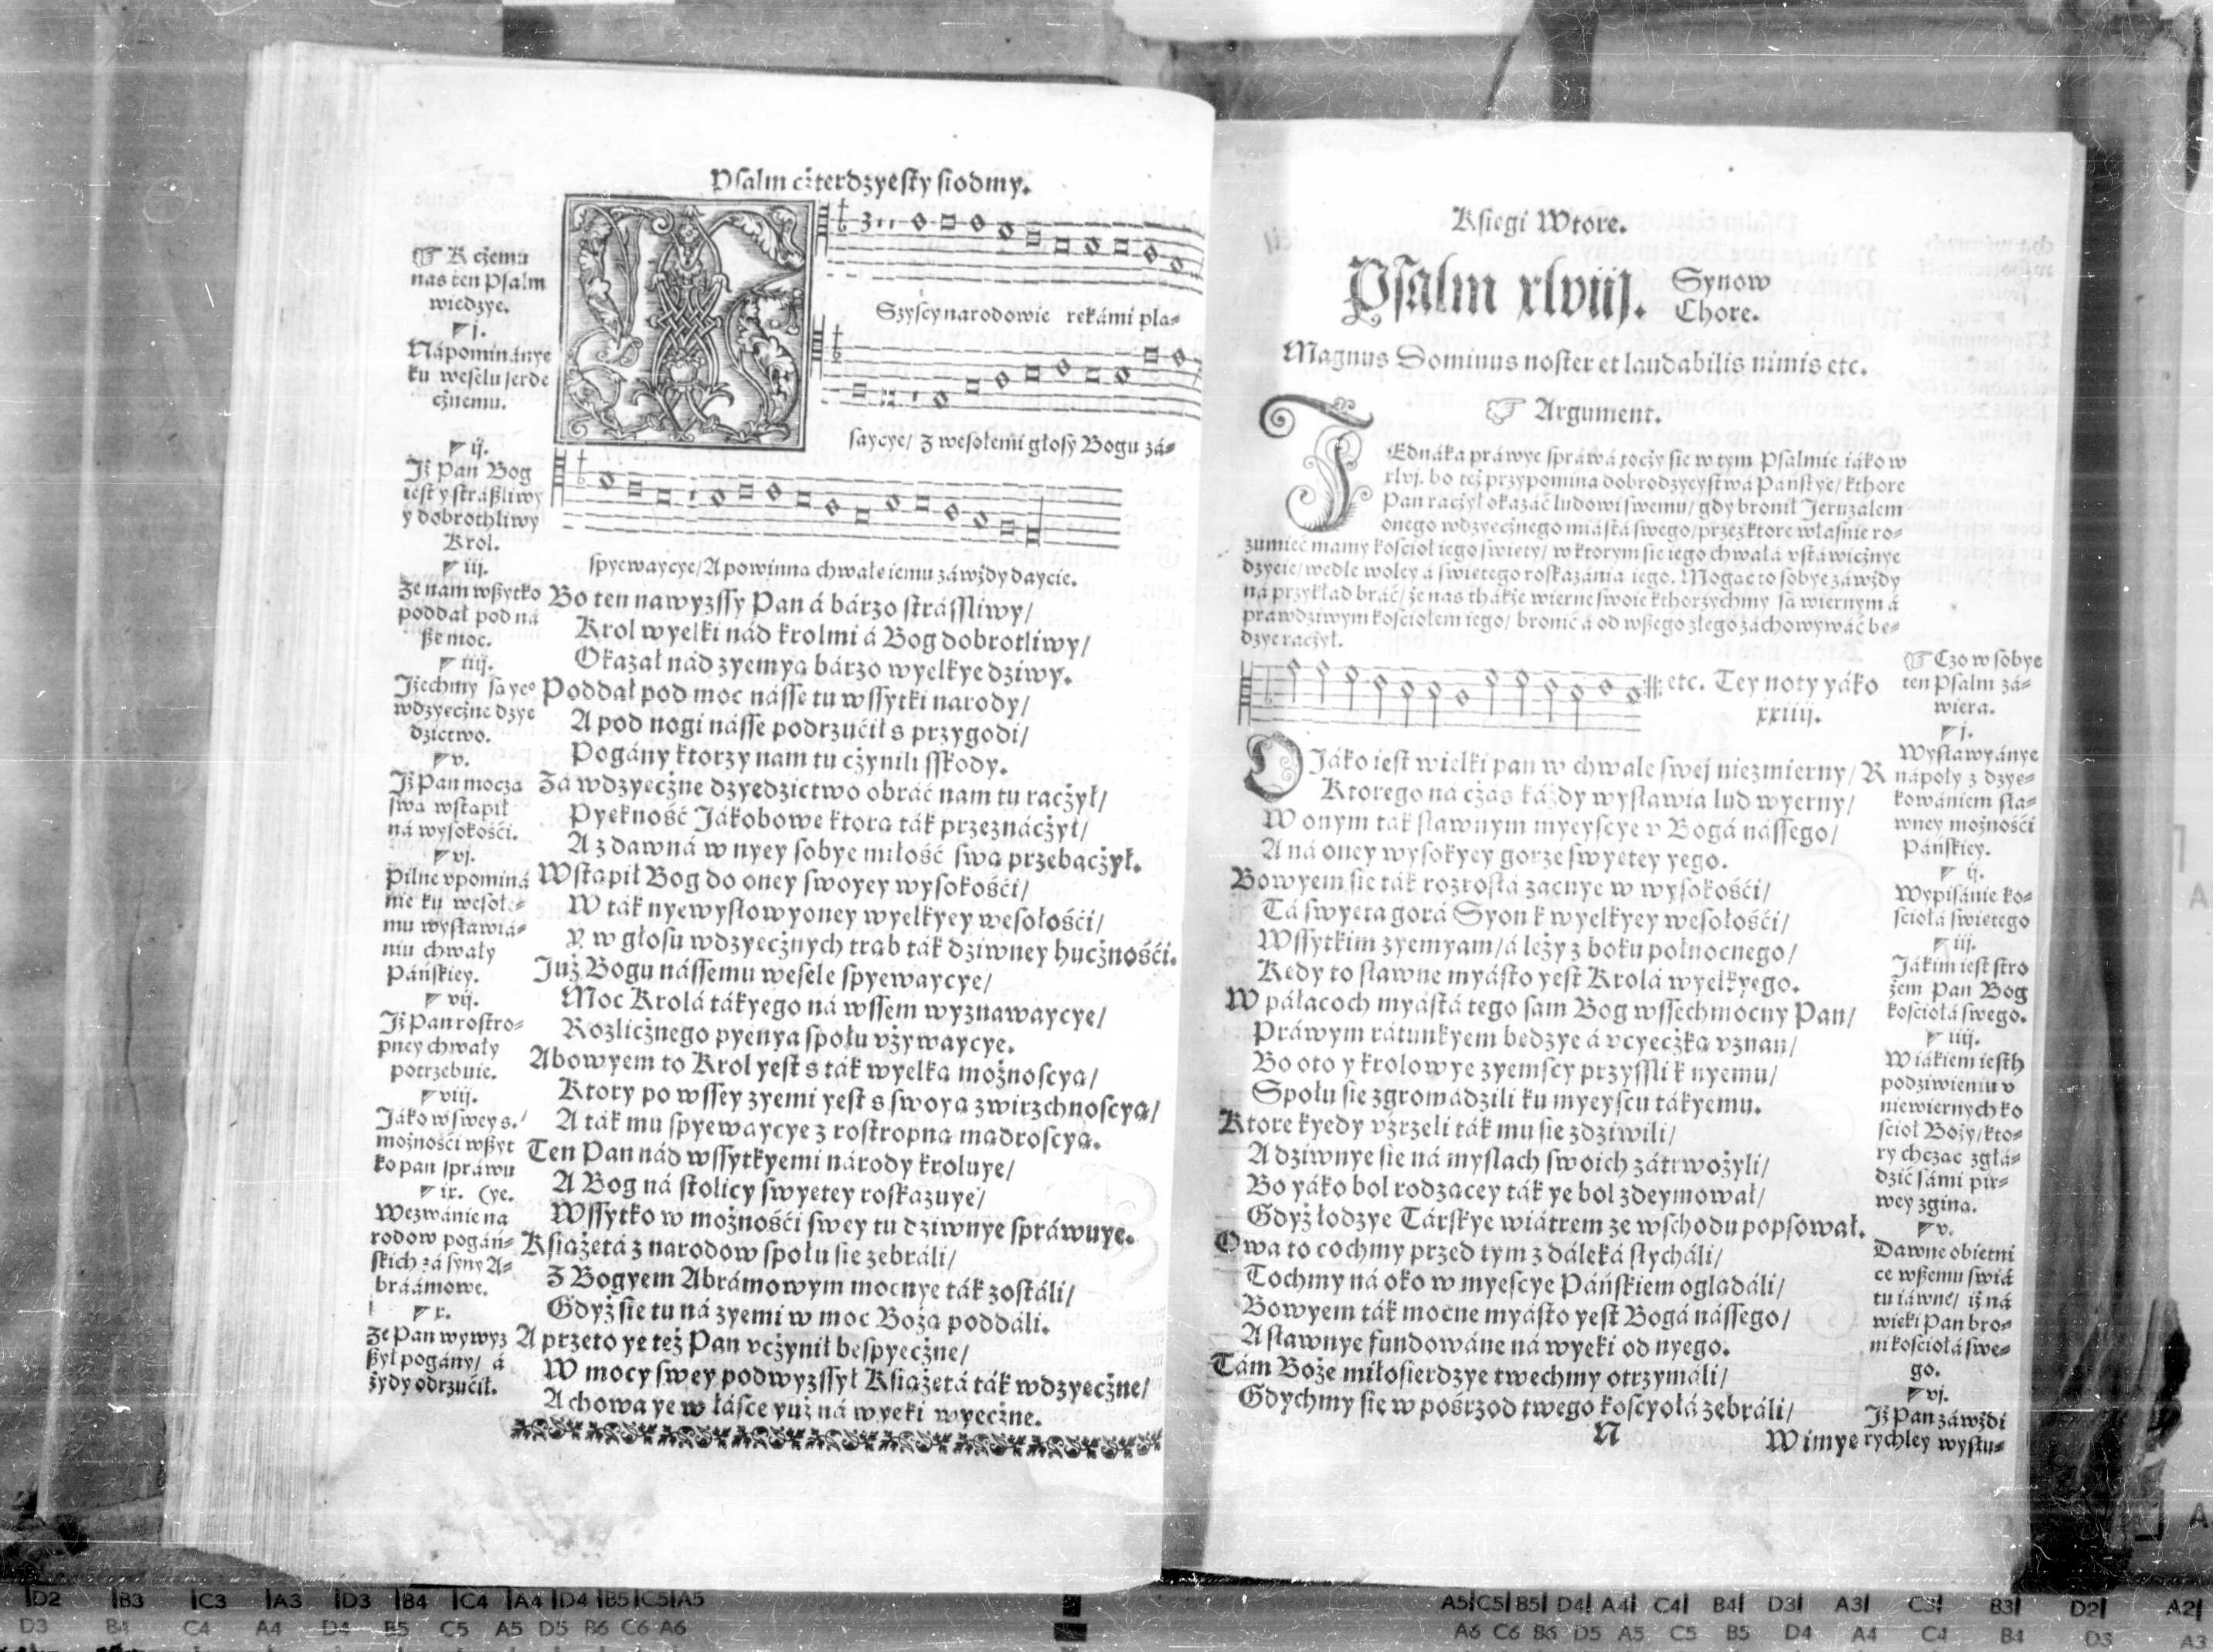 Psalm cżterdzyesty siodmy.
K cżemu
nas ten Psalm
wiedzye.
j.
Nápominánye
ku weselu serde
cżnemu.
ij.
Jż Pan Bog
iest y strášliwy
y dobrothliwy
Krol.
iij.
Że nam wßytko
poddał pod ná
ße moc.
iiij.
Jżechmy sa yeº
wdzyecżne dzye
dzictwo.
v.
Jż Pan mocza
swa wstapił
ná wysokośći.
vj.
Pilne vpominá
nie ku wesołe-
mu wystawiá-
niu chwały
Páńskiey.
vij.
Jż Pan rostro-
pney chwały
potrzebuie.
viij.
Jáko w swey s.
możnośći wßyt
ko pan spráwu
ix. (ye.
Wezwánie na
rodow pogáń-
skich zá syny A-
bráámowe.
x.
Że Pan wywyz
ßył pogány/ á
żydy odrzućił.
Szyscy narodowie rekámi pla-
saycye/ z wesołemi głosy Bogu zá-
spyewaycye/ A powinna chwałe iemu záwżdy daycie.
Bo ten nawyzssy Pan á bárzo strássliwy/
Krol wyelki nád krolmi á Bog dobrotliwy/
Okazał nád zyemya bárzo wyelkye dziwy.
Poddał pod moc násse tu wssytki narody/
A pod nogi násse podrzućił s przygodi/
Pogány ktorzy nam tu cżynili sskody.
Zá wdzyecżne dzyedzictwo obráć nam tu racżył/
Pyekność Jákobowe ktora ták przeznácżył/
A z dawná w nyey sobye miłość swa przebacżył.
Wstapił Bog do oney swoyey wysokośći/
W ták nyewysłowyoney wyelkyey wesołośći/
Y w głosu wdzyecżnych trab ták dziwney hucżnośći.
Już Bogu nássemu wesele spyewaycye/
Moc Krolá tákyego ná wssem wyznawaycye/
Rozlicżnego pyenya społu vżywaycye.
Abowyem to Krol yest s ták wyelka możnoscya/
Ktory po wssey zyemi yest s swoya zwirzchnoscya/
A ták mu spyewaycye z rostropna madroscya.
Ten Pan nád wssytkyemi národy kroluye/
A Bog ná stolicy swyetey roskazuye/
Wssytko w możnośći swey tu dziwnye spráwuye.
Książetá z narodow społu sie zebráli/
Z Bogyem Abrámowym mocnye ták zostáli/
Gdyż sie tu ná zyemi w moc Boża poddáli.
A przeto ye też Pan vcżynił bespyecżne/
W mocy swey podwyzssył Książetá ták wdzyecżne/
A chowa ye w łásce yuż ná wyeki wyecżne.
Ksiegi Wtore.
Psalm xlviij. Synow
Chore.
Magnus Dominus noster et laudabilis nimis etc.
Argument.
JEdnáka práwye spráwá tocży sie w tym Psalmie iáko w
xlvj. bo też przypomina dobrodzyeystwá Páńskye/ kthore
Pan racżył okazáć ludowi swemu/ gdy bronił Jeruzalem
onego wdzyecżnego miástá swego/ przez ktore własnie ro-
zumieć mamy kościoł iego swiety/ w ktorym sie iego chwałá vstáwicżnye
dzyeie/ wedle woley á swietego roskazánia iego. Mogac to sobye záwżdy
ná przykład bráć/ że nas thákże wierne swoie kthorzychmy sa wiernym á
prawdziwym kościołem iego/ bronić á od wßego złego záchowywáć be-
dzye racżył.
etc. Tey noty yáko
xxiiij.
O Jáko iest wielki pan w chwale swej niezmierny/ R
Ktorego na cżas káżdy wysławia lud wyerny/
W onym ták sławnym myeyscye v Bogá nássego/
A ná oney wysokyey gorze swyetey yego.
Bowyem sie ták rozrostá zacnye w wysokośći/
Tá swyeta gorá Syon k wyelkyey wesołośći/
Wssytkim zyemyam/ á leży z boku połnocnego/
Kedy to sławne myásto yest Krolá wyelkyego.
W páłacoch myástá tego sam Bog wssechmocny Pan/
Práwym rátunkyem bedzye á vcyecżka vznan/
Bo oto y krolowye zyemscy przyssli k nyemu/
Społu sie zgromádzili ku myeyscu tákyemu.
Ktore kyedy vżrzeli ták mu sie zdziwili/
A dziwnye sie ná myslach swoich zátrwożyli/
Bo yáko bol rodzacey ták ye bol zdeymował/
Gdyż łodzye Társkye wiátrem ze wschodu popsował.
Owa to cochmy przed tym z dáleká słycháli/
Tochmy ná oko w myescye Páńskiem ogladáli/
Bowyem ták mocne myásto yest Bogá nássego/
A sławnye fundowáne ná wyeki od nyego.
Tám Boże miłosierdzye twechmy otrzymáli/
Gdychmy się w pośrzod twego koscyołá zębráli/
N
W imye
Czo w sobye
ten Psalm zá-
wiera.
j.
Wysławyánye
nápoły z dzye-
kowániem sła-
wney możnośći
Páńskiey.
ij.
Wypisánie ko-
sciołá swietego
iij.
Jákim iest stro
żem Pan Bog
kościołá swego.
iiij.
W iákiem iesth
podziwieniu v
niewiernych ko
scioł Boży/ kto-
ry chcżac zgłá-
dzić sámi pir-
wey zgina.
v.
Dawne obietni
ce wßemu swiá
tu iáwne/ iż ná
wieki Pan bro-
ni kościołá swe-
go.
vj.
Jż Pan záwżdi
rychley wysłu-